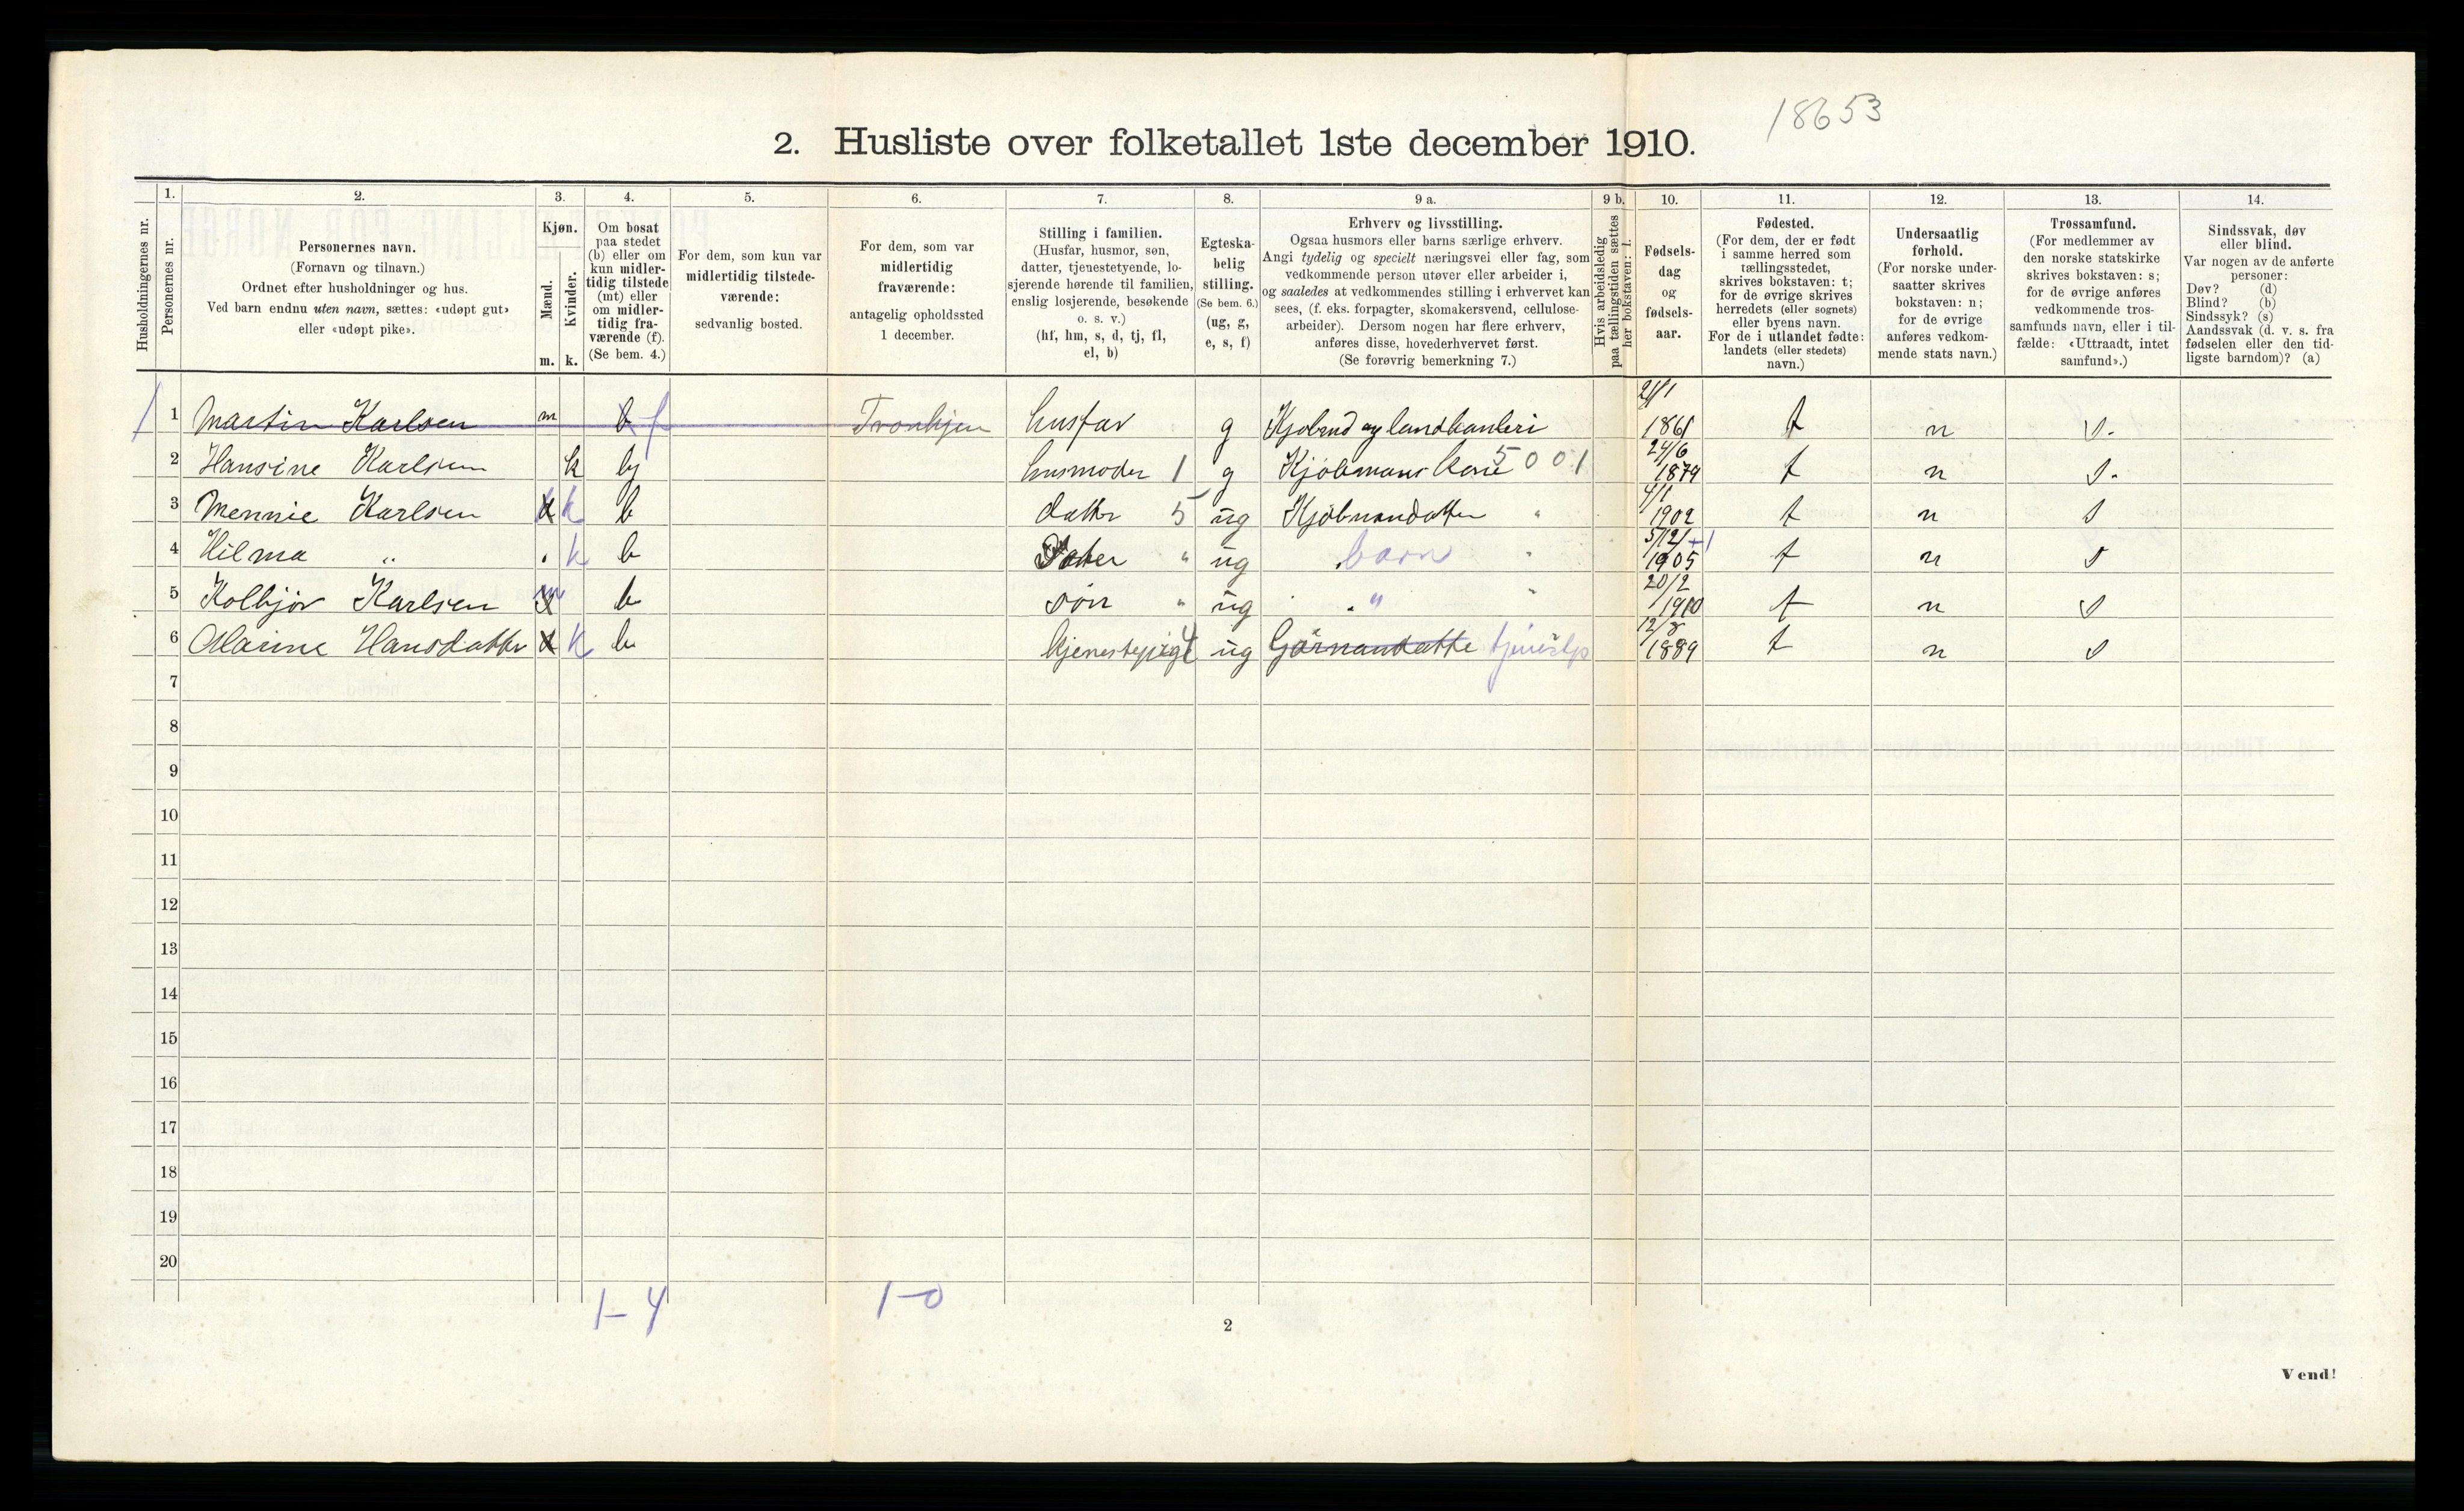 18653
2. Husliste over folketallet 1ste december 1910.
1. 2. 3. 4. 5. 6. 7. 8. 9 a. 9 b. 10. 11. 12. 13. 14.
Husholdningernes nr.
Personernes nr.
Personernes navn.
(Fornavn og tilnavn.)
Ordnet efter husholdninger og hus.
Ved barn endnu uten navn, sættes: «udøpt gut»
eller «udøpt pike».
Kjøn.
Mænd.
Kvinder.
m. k.
Om bosat
paa stedet
(b) eller om
kun midler-
tidig tilstede
(mt) eller
om midler-
tidig fra-
værende (f).
(Se bem. 4.)
For dem, som kun var
midlertidig tilstede-
værende:
sedvanlig bosted.
For dem, som var
midlertidig
fraværende:
antagelig opholdssted
1 december.
Stilling i familien.
(Husfar, husmor, søn,
datter, tjenestetyende, lo-
sjerende hørende til familien,
enslig losjerende, besøkende
o. s. v.)
(hf, hm, s, d, tj, fl,
el, b)
Egteska-
belig
stilling.
(Se bem. 6.)
(ug, g,
e, s, f)
Erhverv og livsstilling.
Ogsaa husmors eller barns særlige erhverv.
Angi tydelig og specielt næringsvei eller fag, som
vedkommende person utøver eller arbeider i,
og saaledes at vedkommendes stilling i erhvervet kan
sees, (f. eks. forpagter, skomakersvend, cellulose-
arbeider). Dersom nogen har flere erhverv,
anføres disse, hovederhvervet først.
(Se forøvrig bemerkning 7.)
Hvis arbeidsledig
paa tællingstiden sættes
her bokstaven: l.
Fødsels-
dag
og
fødsels-
aar.
Fødested.
(For dem, der er født
i samme herred som
tællingsstedet,
skrives bokstaven: t;
for de øvrige skrives
herredets (eller sognets)
eller byens navn.
For de i utlandet fødte:
landets (eller stedets)
navn.)
Undersaatlig
forhold.
(For norske under-
saatter skrives
bokstaven: n;
for de øvrige
anføres vedkom-
mende stats navn.)
Trossamfund.
(For medlemmer av
den norske statskirke
skrives bokstaven: s;
for de øvrige anføres
vedkommende tros-
samfunds navn, eller i til-
fælde: «Uttraadt, intet
samfund».)
Sindssvak, døv
eller blind.
Var nogen av de anførte
personer:
Døv? (d)
Blind? (b)
Sindssyk? (s)
Aandssvak (d. v. s. fra
fødselen eller den tid-
ligste barndom)? (a)
1 1 Martin Karlsen m b f Tronhjen husfar g 21/1 1861 t n s.
2 Hansine Karlsen k b husmoder 1 g Kjöbmans kone 5001 24/6 1879 t n s.
3 Mennie Karlsen k b datter 5 ug Kjöbmandatter " 4/1 1902 t n s
4 Hilma " k b Datter " ug barn " 5/12 1905 t n s
5 Kolbjör Karlsen m b sön " ug " " 20/2 1910 t n s
6 Hansdatter k b tjenestepige ug 1889 t n s
7
8
9
10
11
12
13
14
15
16
17
18
19
20
1-4 1-0
2
Vend!